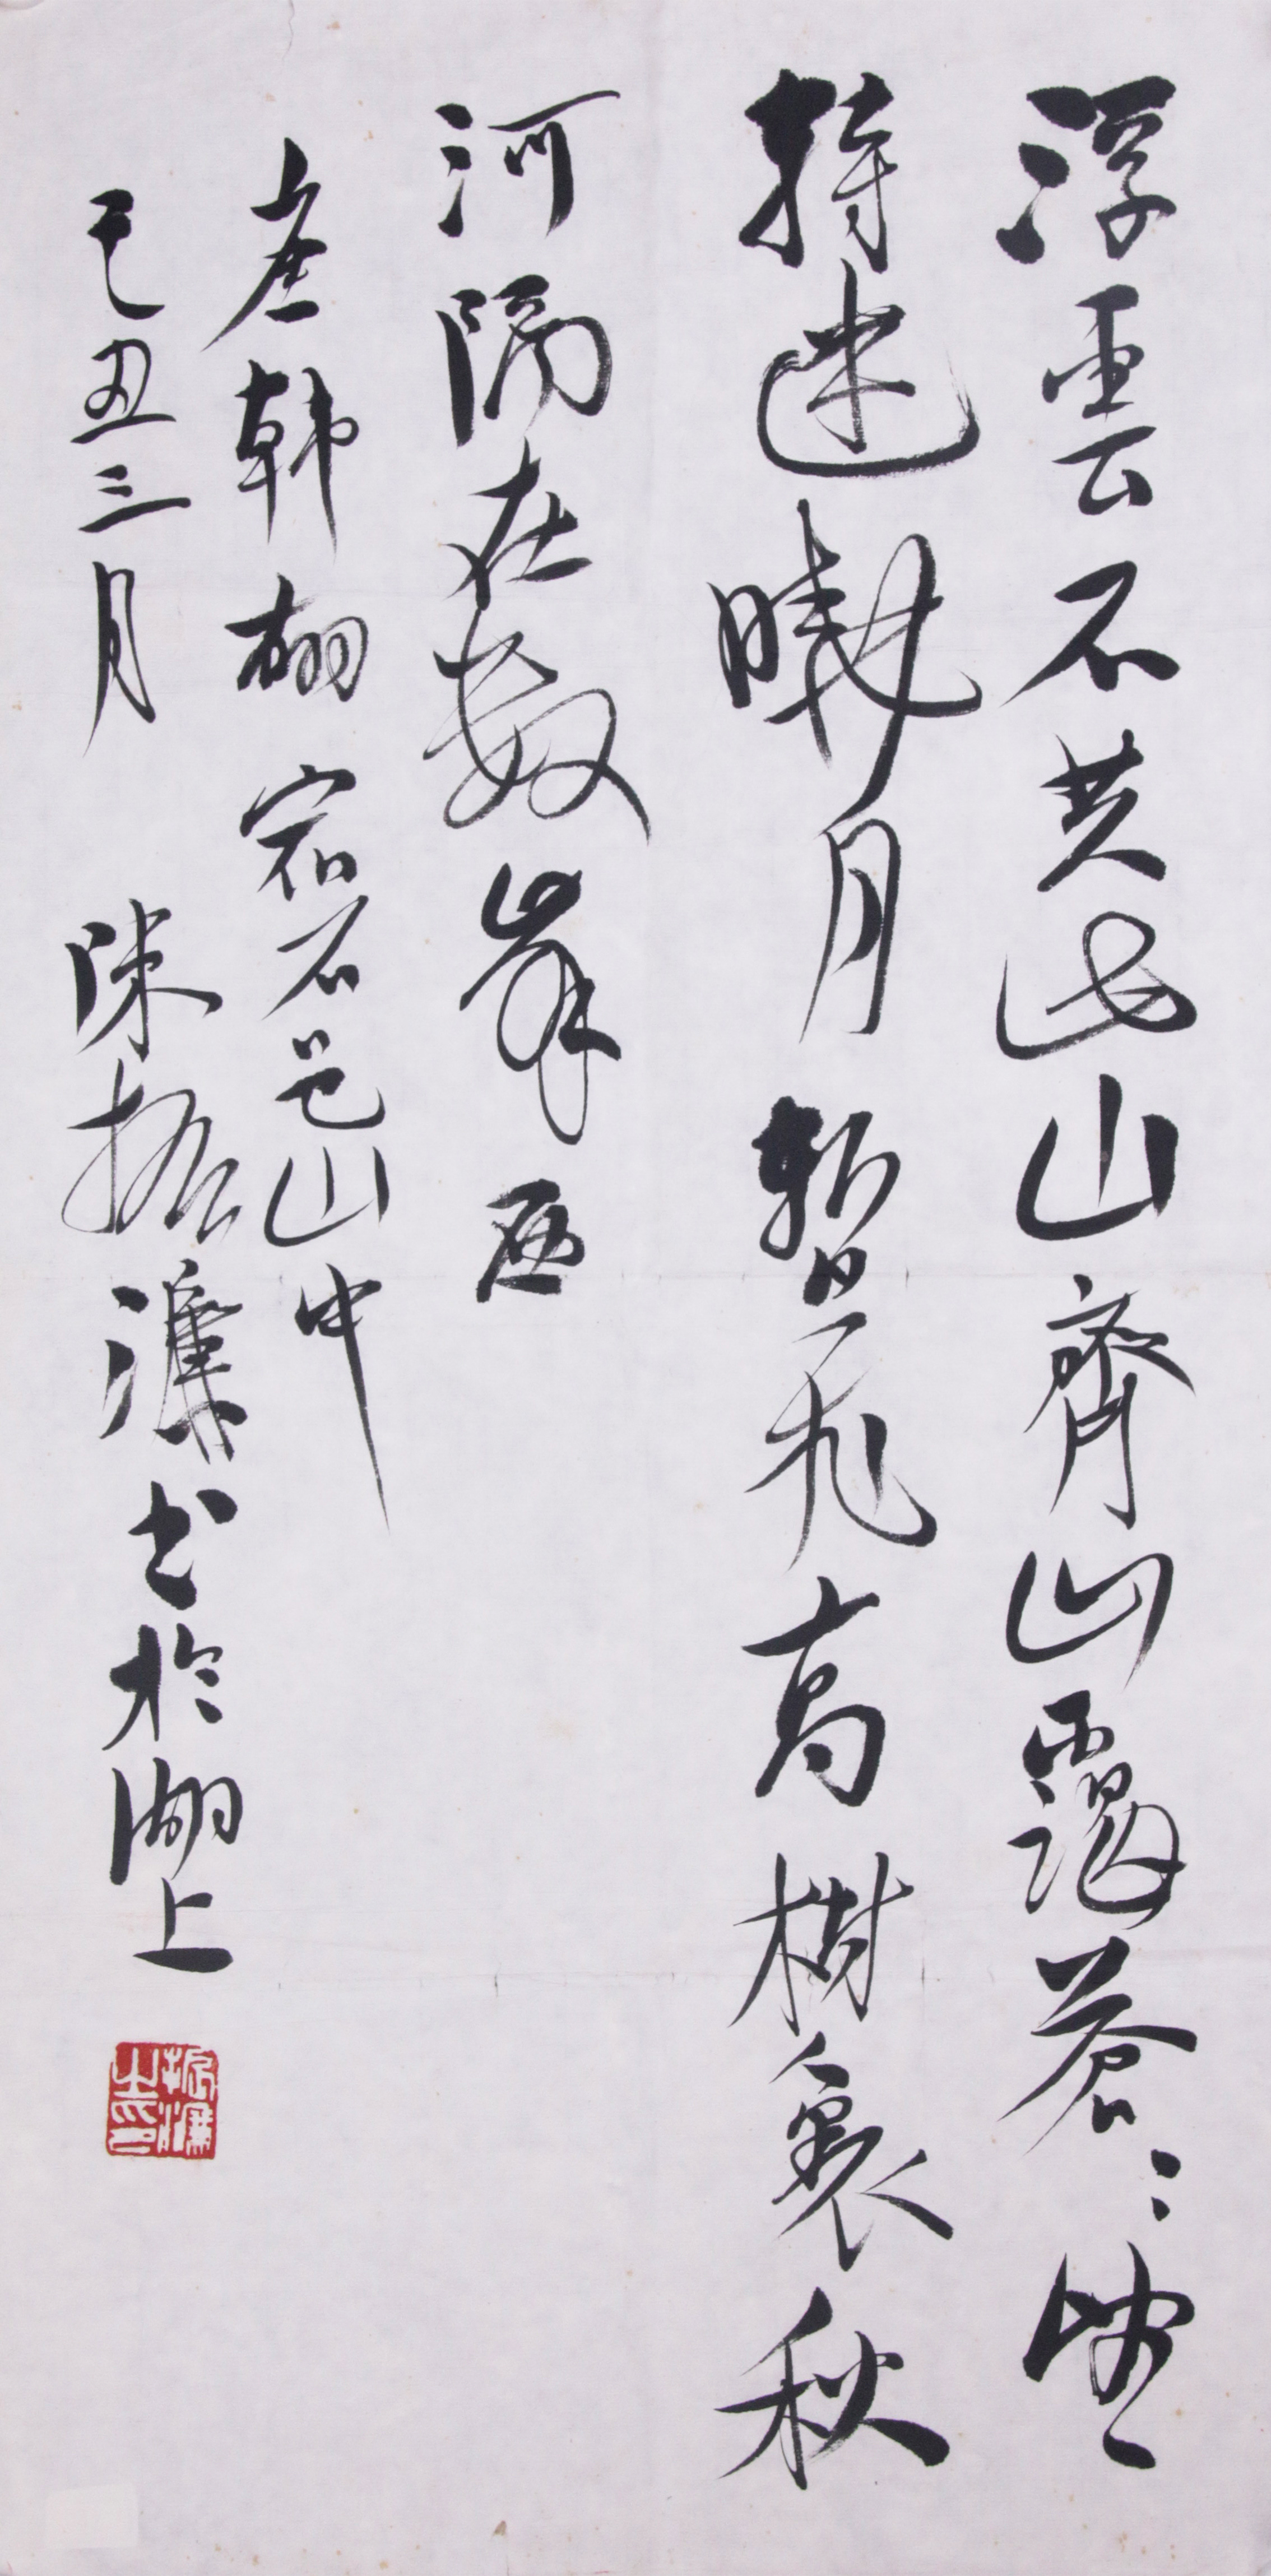 浮雲不共此山齊山靄蒼〻望
轉迷曉月暫飛高樹裏秋
河隔在數峯西
唐韓翃宿石邑山中
己丑三月 陳振濂書於湖上
振濂之印